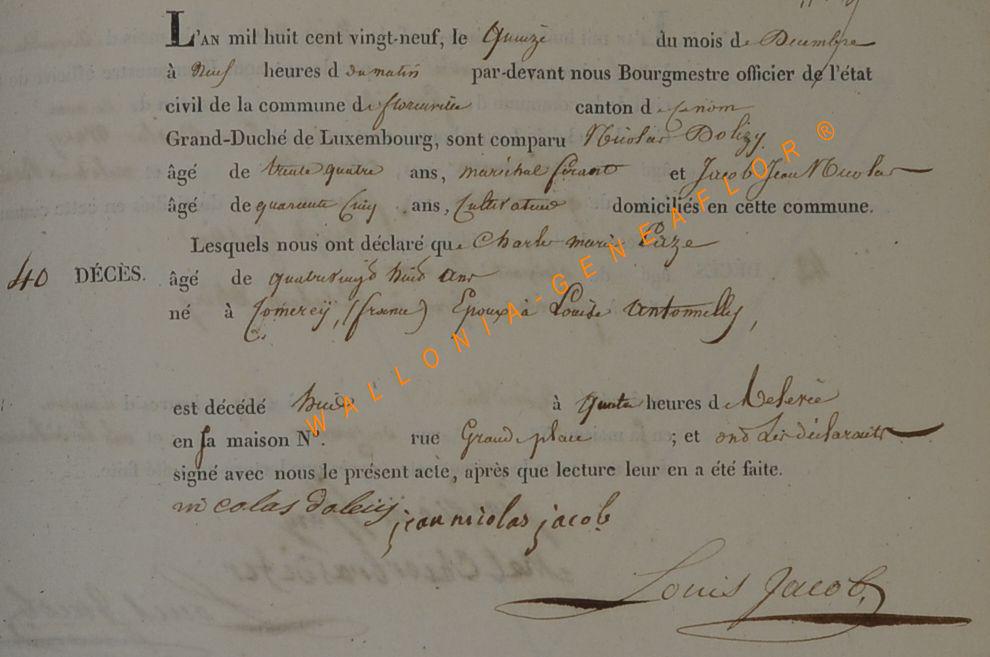 L'AN mil huit cent vingt-neuf, le Quinze du mois de Decembre
à Neuf heures d du matin par-devant nous Bourgmestre officier de l'état
civil de la commune de florenville canton d
Grand-Duché de Luxembourg, sont comparu Nicolas Dolizy
âgé de trente quatre ans, maréchal ferant et Jacob Jean Nicolas
âgé de quarente Cinq ans, Cultivateur domiciliés en cette commune.
Lesquels nous ont déclaré que Charle marie Laze
40 DÉCÈS. âgé de quatrevingd huid ans
né à (france) Epoux à Louise Antonnelly,
est décédé huid à quatre heures d
en sa maison N° rue Grande place ; et ond Les déclarants
signé avec nous le présent acte, après que lecture leur en a été faite.
nicolas dolizy jean nicolas jacob
Louis Jacob
WALLONIA-GENEAFLOR ®